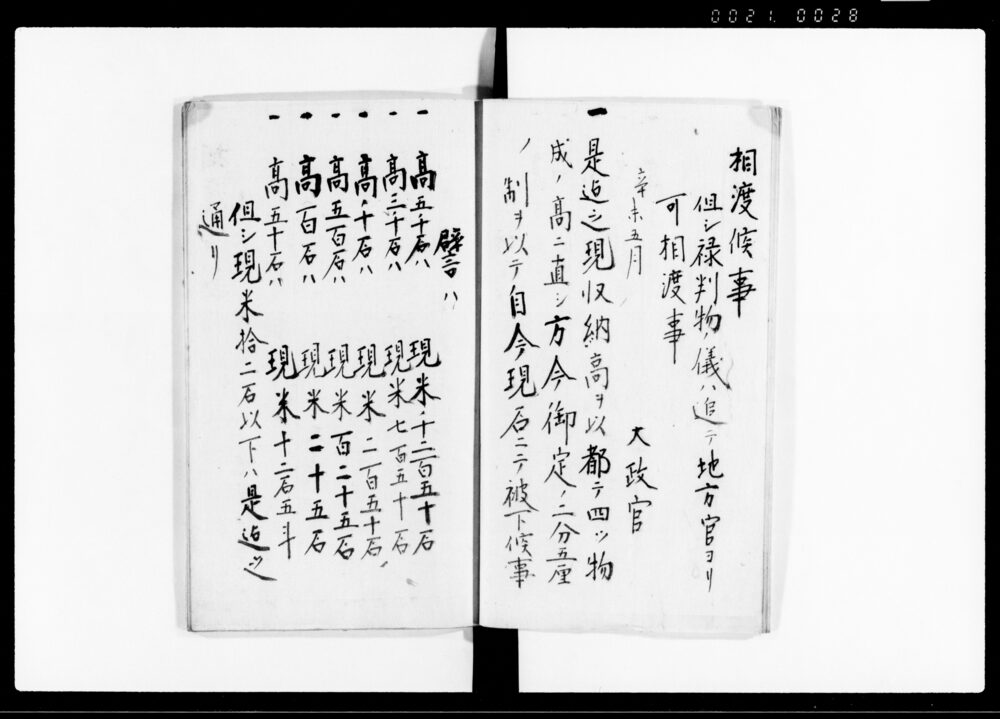 0021 0028
相渡候事
但シ禄判物ノ儀ハ追テ地方官ヨリ
可相渡事
辛未五月
大政官
一 是迠之現収納高ヲ以都テ四ッ物
成ノ高ニ直シ方今御定ノ二分五厘
ノ制ヲ以テ自今現石ニテ被下候事
譬言ハ
一 高五千石ハ 現米千二百五十石
一 高三千石ハ 現米七百五十石
一 高千石ハ 現米二百五十石
一 高五百石ハ 現米百二十五石
一 高百石ハ 現米二十五石
一 高五十石ハ 現米十二石五斗
但シ現米拾二石以下ハ是迠之
通リ